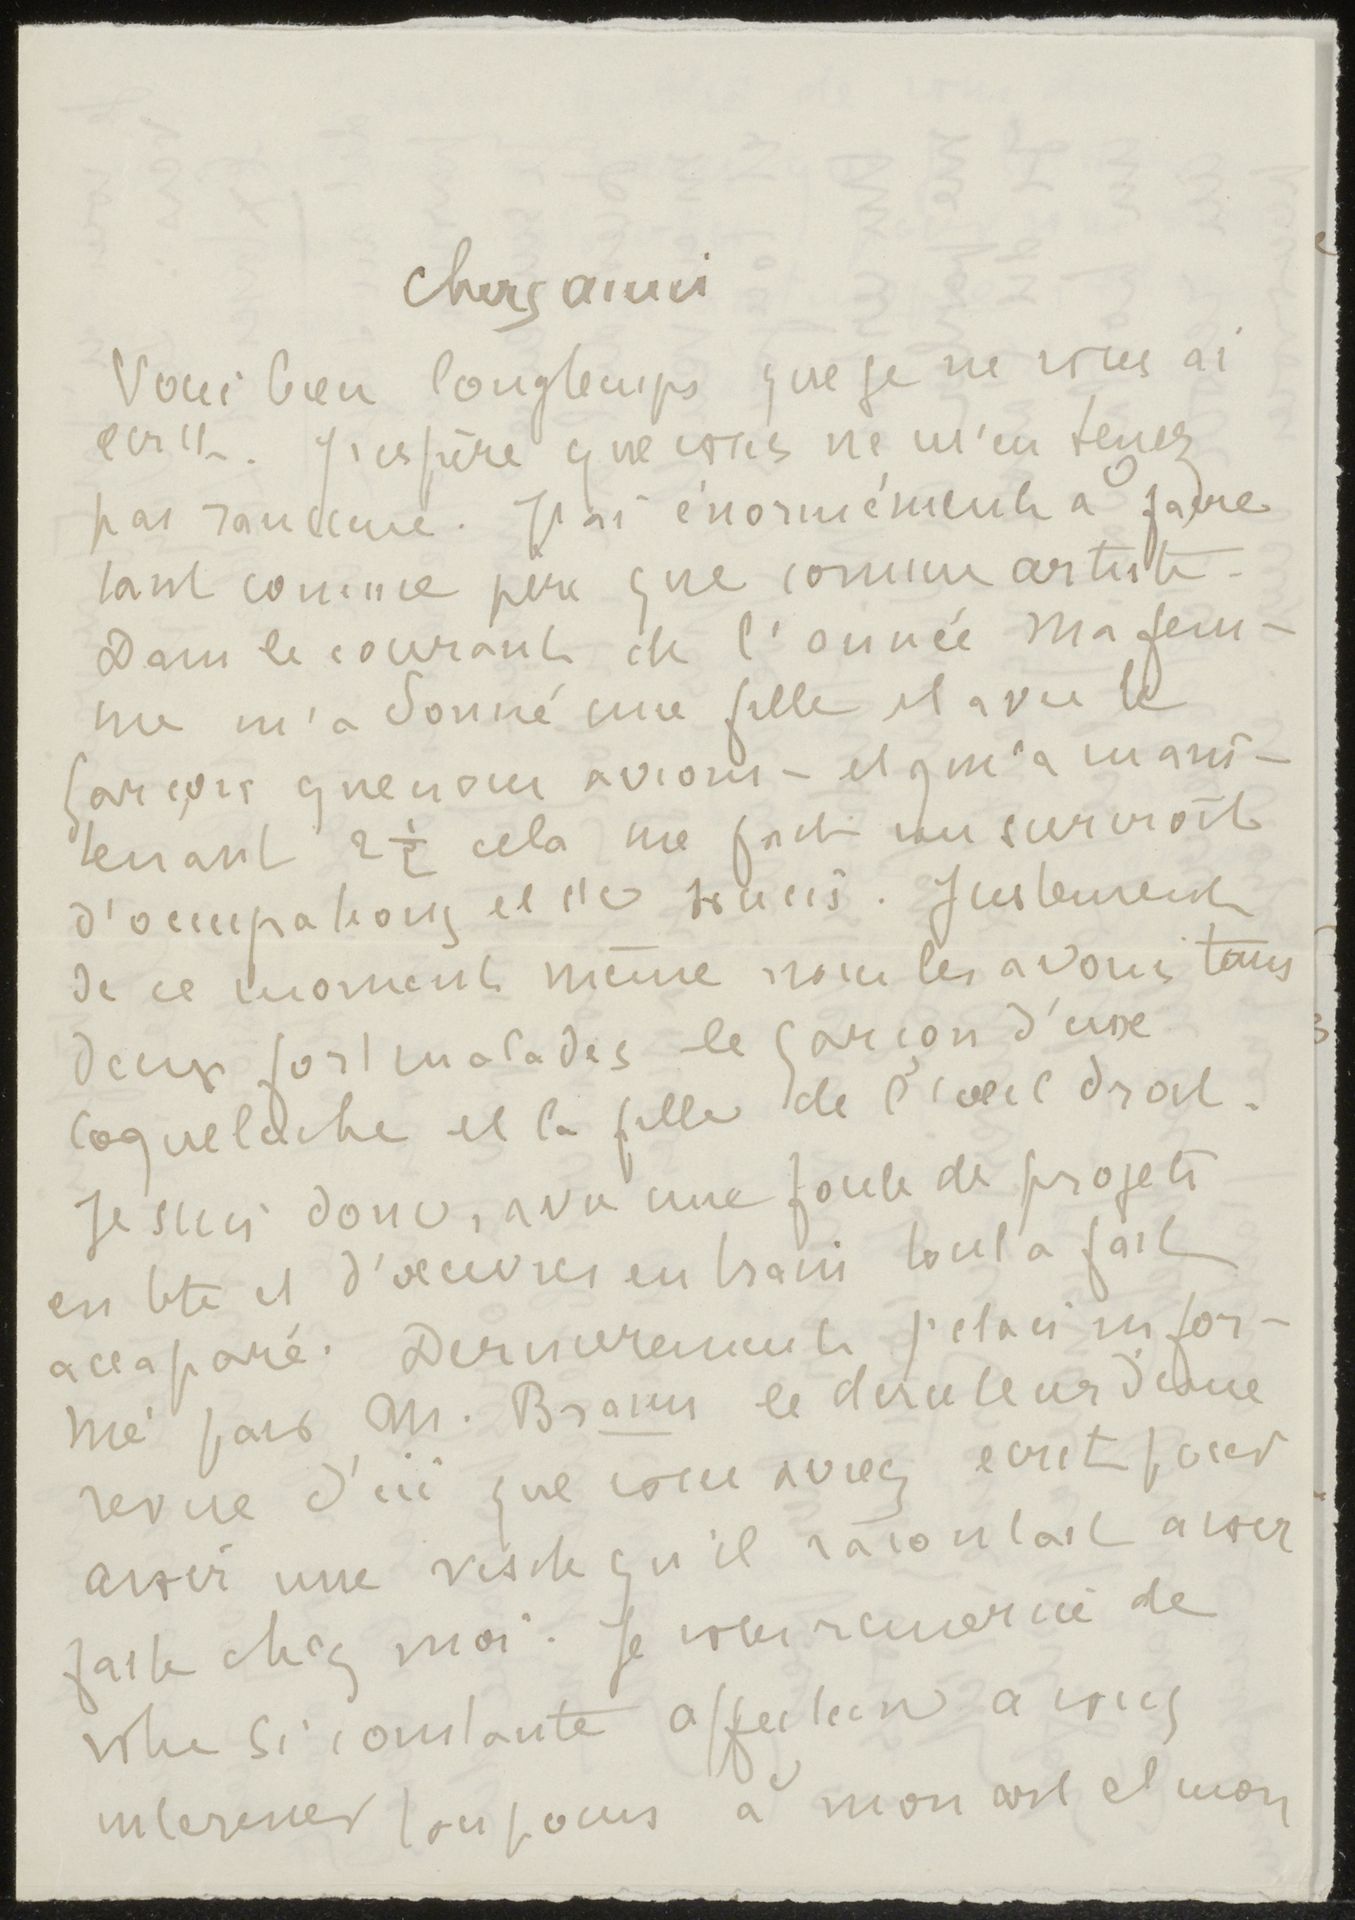 Chers amis
Voici bien longtemps que je ne vous ai
ecrit. J'espère que vous ne m'en tenez
pas rancune. J'ai énormément à faire
tant comme père que comme artiste.
Dans le courant de l'année ma fem-
me m'a donné une fille et avec le
garçon que nous avions – et qui a main-
tenant 2 ½ cela me fait un surcroît
d'occupations et de soucis. Justement
de ce moment même nous les avons tous
deux fort malades le garçon d'une
coqueluche et la fille de l'oeil droit.
Je suis donc, avec une foule de projets
en tete et d'oeuvres en train tout a fait
accaparé. Dernierement j'etais infor-
mé par M. Braun le directeur d'une
revue d'ici que vous aviez ecrit pour
avoir une visite qu'il racontait avoir
faite chez moi. Je vous remercie de
votre si constante affection a vous
interesser toujours à mon art et mon